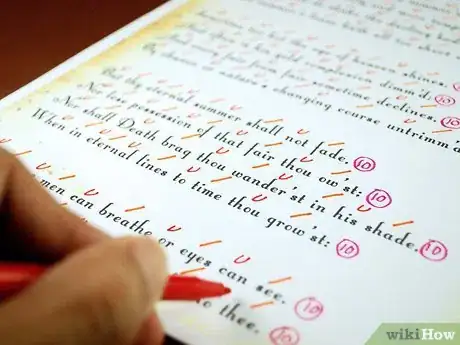 hot the eye of heaven shines,
is his gold complexion dimm'd,
fair from fair sometime declines, 10
nature's changing course untrimm'd 10
But thy eternal summer shall not fade. 10
Nor lose possession of that fair thou ow'st: 10
Nor shall Death brag thou wander'st in his shade. 10
When in eternal lines to time thou grow'st: 10
men can breathe or eyes can see. 10
to thee. 10
wikiHow